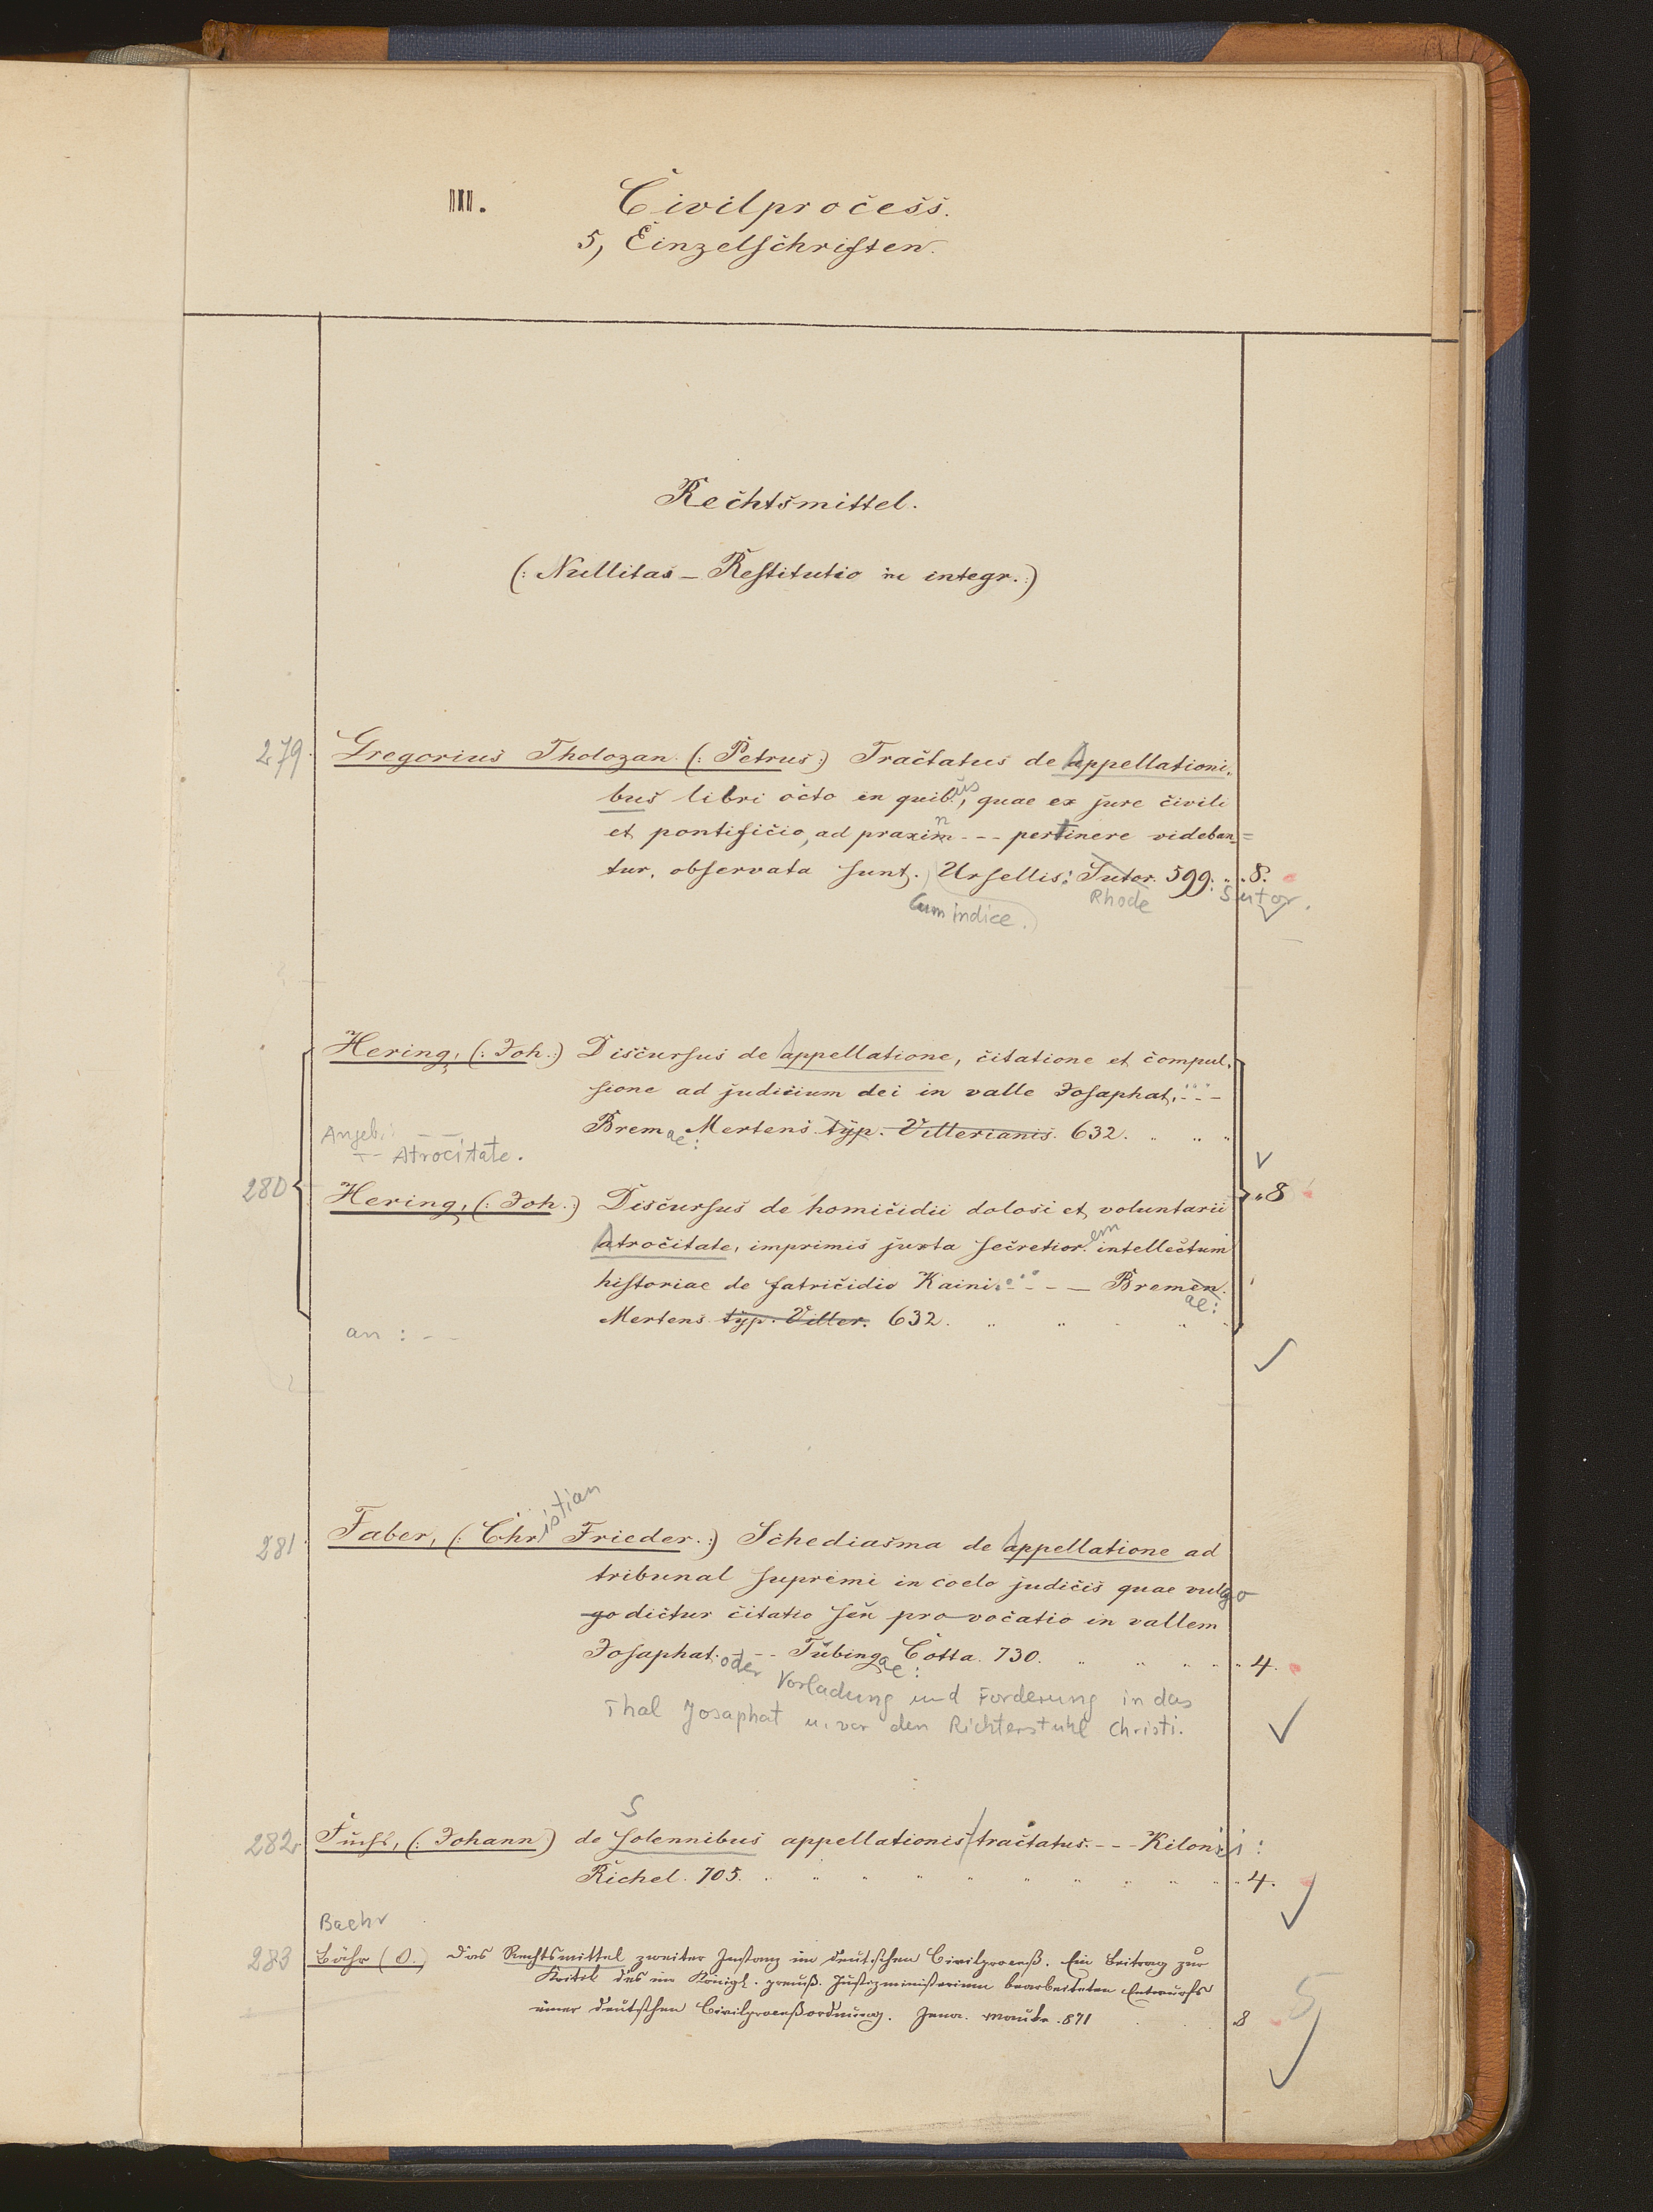 III. Civilprocess.
5, Einzelschriften.
Rechtsmittel.
(: Nullitas – Restitutio in integr. :)
279. Gregorius Tholozan. (: Petrus :) Tractatus de Appellationi-
bus libri octo in quibus, quae ex jure civili
et pontificio, ad praxin --- pertinere videban=
tur, observata sunt. Ursellis: Sutor. 599. 8.
Cum indice.) Rhode Sutor.
Hering, (: Joh. :) Discursus de Appellatione, citatione et compul-
sione ad judicium dei in valle Josaphat. ---
Bremae: Mertens typ. Villerianis. 632.
Angeb.
-- Atrocitate.
280 Hering, (: Joh. :) Discursus de homicidii dolosi et voluntarii 8
Atrocitate, imprimis juxta secretiorem intellectum
historiae de fatricidio Kaini. --- Bremen.
ae:
Mertens typ. Viller. 632.
an : --
281. Faber, (: Christian Frieder. :) Schediasma de Appellatione ad
tribunal supremi in coelo judicis quae vulgo
go dictur citatio seu provocatio in vallem
Josaphat. oder -- Tübingae: Cotta. 730. 4.
Vorladung und Forderung in das
Thal Josaphat u. vor den Richterstuhl Christi.
S
282. Fuchs, (: Johann) de solennibus appellationis tractatus. --- Kiloni:
Richel. 705. 4.
Baehr
283 Bähr (O.) Das Rechtsmittel zweiter Instanz im deutschen Civilproceß. Ein Beitrag zur
Kritik des im Königl. preuß. Justizministerium bearbeiteten Entwurfs
einer deutschen Civilproceßordnung. Jena. Mauke. 871 8
5